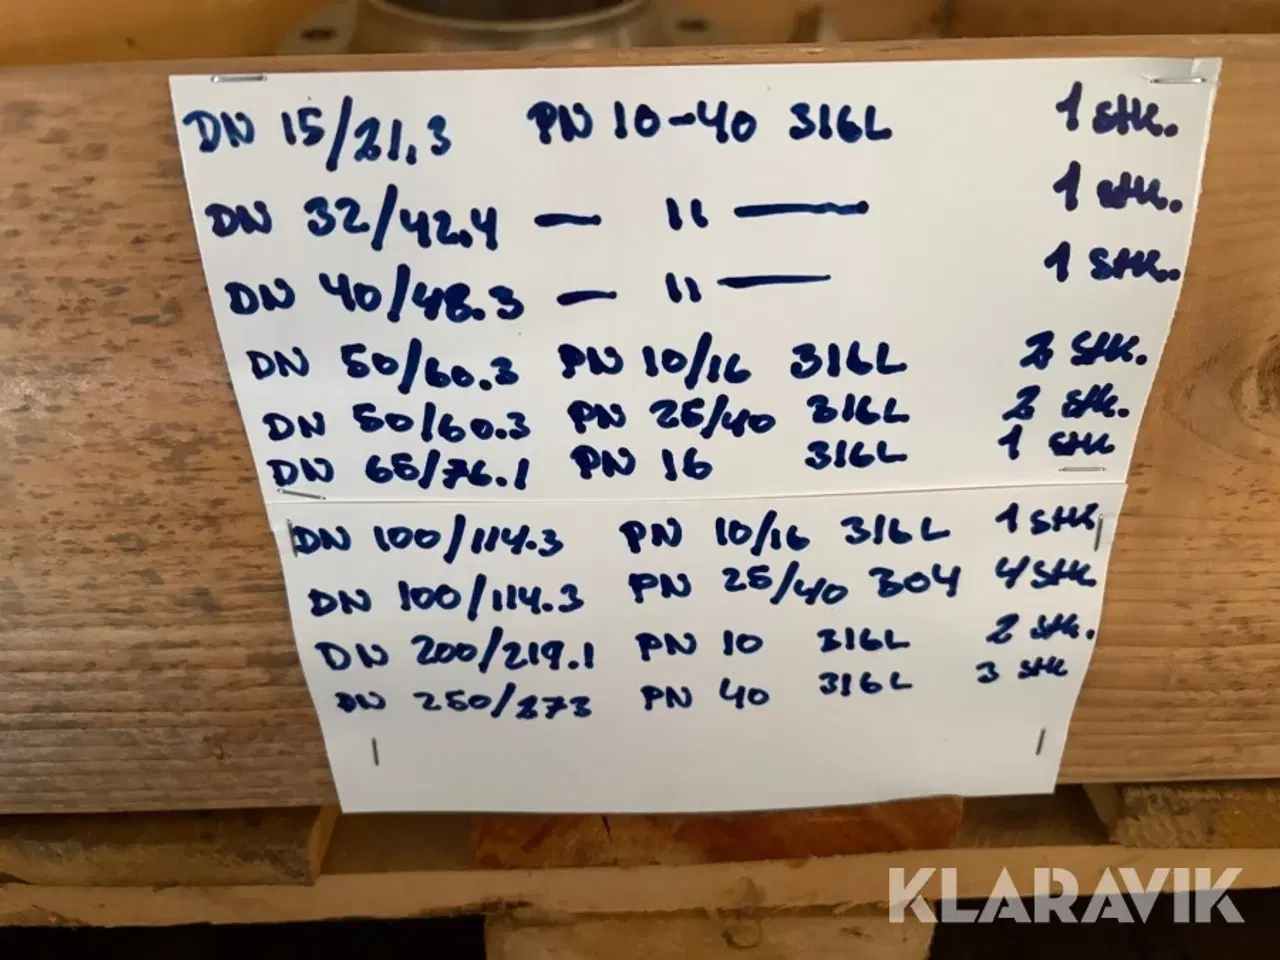 DN 15/21.3 PN 10-40 316L 1 stk.
DN 32/42.4 — 11 — 1 stk.
DN 40/48.3 — 11 — 1 stk.
DN 50/60.3 PN 10/16 316L 2 stk.
DN 50/60.3 PN 25/40 316L 2 stk.
DN 65/76.1 PN 16 316L 1 stk
DN 100/114.3 PN 10/16 316L 1 stk
DN 100/114.3 PN 25/40 304 4 stk.
DN 200/219.1 PN 10 316L 2 stk.
DN 250/273 PN 40 316L 3 stk
KLARAVIK